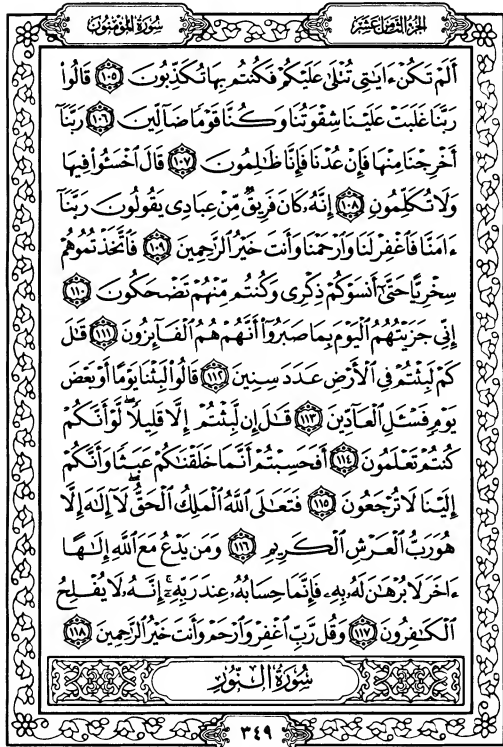 سُورَةُ المُؤْمِنُونَ
الجُزْءُ الثَّامِنَ عَشَرَ
أَلَمْ تَكُنْ ءَايَٰتِى تُتْلَىٰ عَلَيْكُمْ فَكُنتُم بِهَا تُكَذِّبُونَ ١٠٥ قَالُوا۟
رَبَّنَا غَلَبَتْ عَلَيْنَا شِقْوَتُنَا وَكُنَّا قَوْمًا ضَآلِّينَ ١٠٦ رَبَّنَآ
أَخْرِجْنَا مِنْهَا فَإِنْ عُدْنَا فَإِنَّا ظَٰلِمُونَ ١٠٧ قَالَ ٱخْسَـُٔوا۟ فِيهَا
وَلَا تُكَلِّمُونِ ١٠٨ إِنَّهُۥ كَانَ فَرِيقٌ مِّنْ عِبَادِى يَقُولُونَ رَبَّنَآ
ءَامَنَّا فَٱغْفِرْ لَنَا وَٱرْحَمْنَا وَأَنتَ خَيْرُ ٱلرَّٰحِمِينَ ١٠٩ فَٱتَّخَذْتُمُوهُمْ
سِخْرِيًّا حَتَّىٰٓ أَنسَوْكُمْ ذِكْرِى وَكُنتُم مِّنْهُمْ تَضْحَكُونَ ١١٠
إِنِّى جَزَيْتُهُمُ ٱلْيَوْمَ بِمَا صَبَرُوٓا۟ أَنَّهُمْ هُمُ ٱلْفَآئِزُونَ ١١١ قَٰلَ
كَمْ لَبِثْتُمْ فِى ٱلْأَرْضِ عَدَدَ سِنِينَ ١١٢ قَالُوا۟ لَبِثْنَا يَوْمًا أَوْ بَعْضَ
يَوْمٍ فَسْـَٔلِ ٱلْعَآدِّينَ ١١٣ قَٰلَ إِن لَّبِثْتُمْ إِلَّا قَلِيلًا ۖ لَّوْ أَنَّكُمْ
كُنتُمْ تَعْلَمُونَ ١١٤ أَفَحَسِبْتُمْ أَنَّمَا خَلَقْنَٰكُمْ عَبَثًا وَأَنَّكُمْ
إِلَيْنَا لَا تُرْجَعُونَ ١١٥ فَتَعَٰلَى ٱللَّهُ ٱلْمَلِكُ ٱلْحَقُّ ۖ لَآ إِلَٰهَ إِلَّا
هُوَ رَبُّ ٱلْعَرْشِ ٱلْكَرِيمِ ١١٦ وَمَن يَدْعُ مَعَ ٱللَّهِ إِلَٰهًا
ءَاخَرَ لَا بُرْهَٰنَ لَهُۥ بِهِۦ فَإِنَّمَا حِسَابُهُۥ عِندَ رَبِّهِۦٓ ۚ إِنَّهُۥ لَا يُفْلِحُ
ٱلْكَٰفِرُونَ ١١٧ وَقُل رَّبِّ ٱغْفِرْ وَٱرْحَمْ وَأَنتَ خَيْرُ ٱلرَّٰحِمِينَ ١١٨
سُورَةُ النُّورِ
٣٤٩